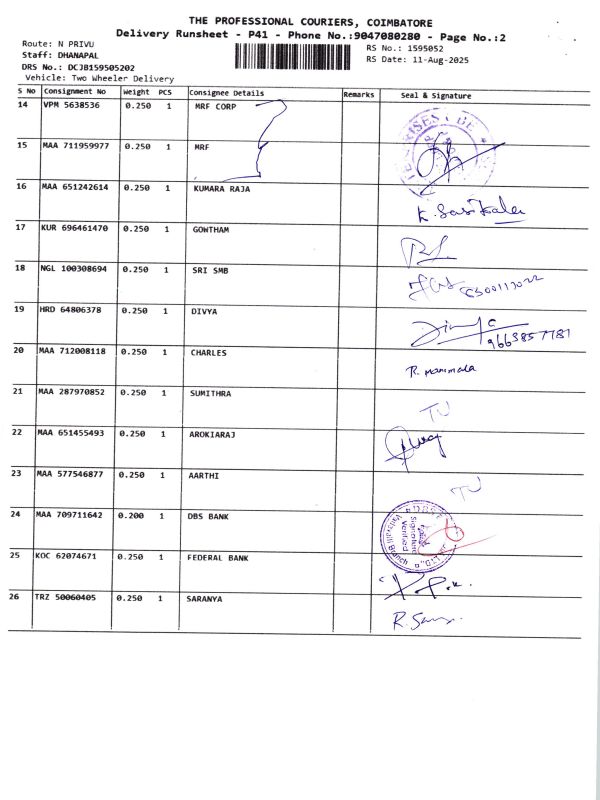 THE PROFESSIONAL COURIERS, COIMBATORE
Delivery Runsheet - P41 - Phone No.:9047080280 - Page No.:2
Route: N PRIVU
RS No.: 1595052
Staff: DHANAPAL
RS Date: 11-Aug-2025
DRS No.: DCJB159505202
Vehicle: Two Wheeler Delivery
S No Consignment No Weight PCS Consignee Details Remarks Seal & Signature
14 VPM 5638536 0.250 1 MRF CORP
15 MAA 711959977 0.250 1 MRF
16 MAA 651242614 0.250 1 KUMARA RAJA
17 KUR 696461470 0.250 1 GOWTHAM
18 NGL 100308694 0.250 1 SRI SMB
19 HRD 64806378 0.250 1 DIVYA
9663857781
20 MAA 712008118 0.250 1 CHARLES
21 MAA 287970852 0.250 1 SUMITHRA
22 MAA 651455493 0.250 1 AROKIARAJ
23 MAA 577546877 0.250 1 AARTHI
24 MAA 709711642 0.200 1 DBS BANK Signature Verified
25 KOC 62074671 0.250 1 FEDERAL BANK
26 TRZ 50060405 0.250 1 SARANYA